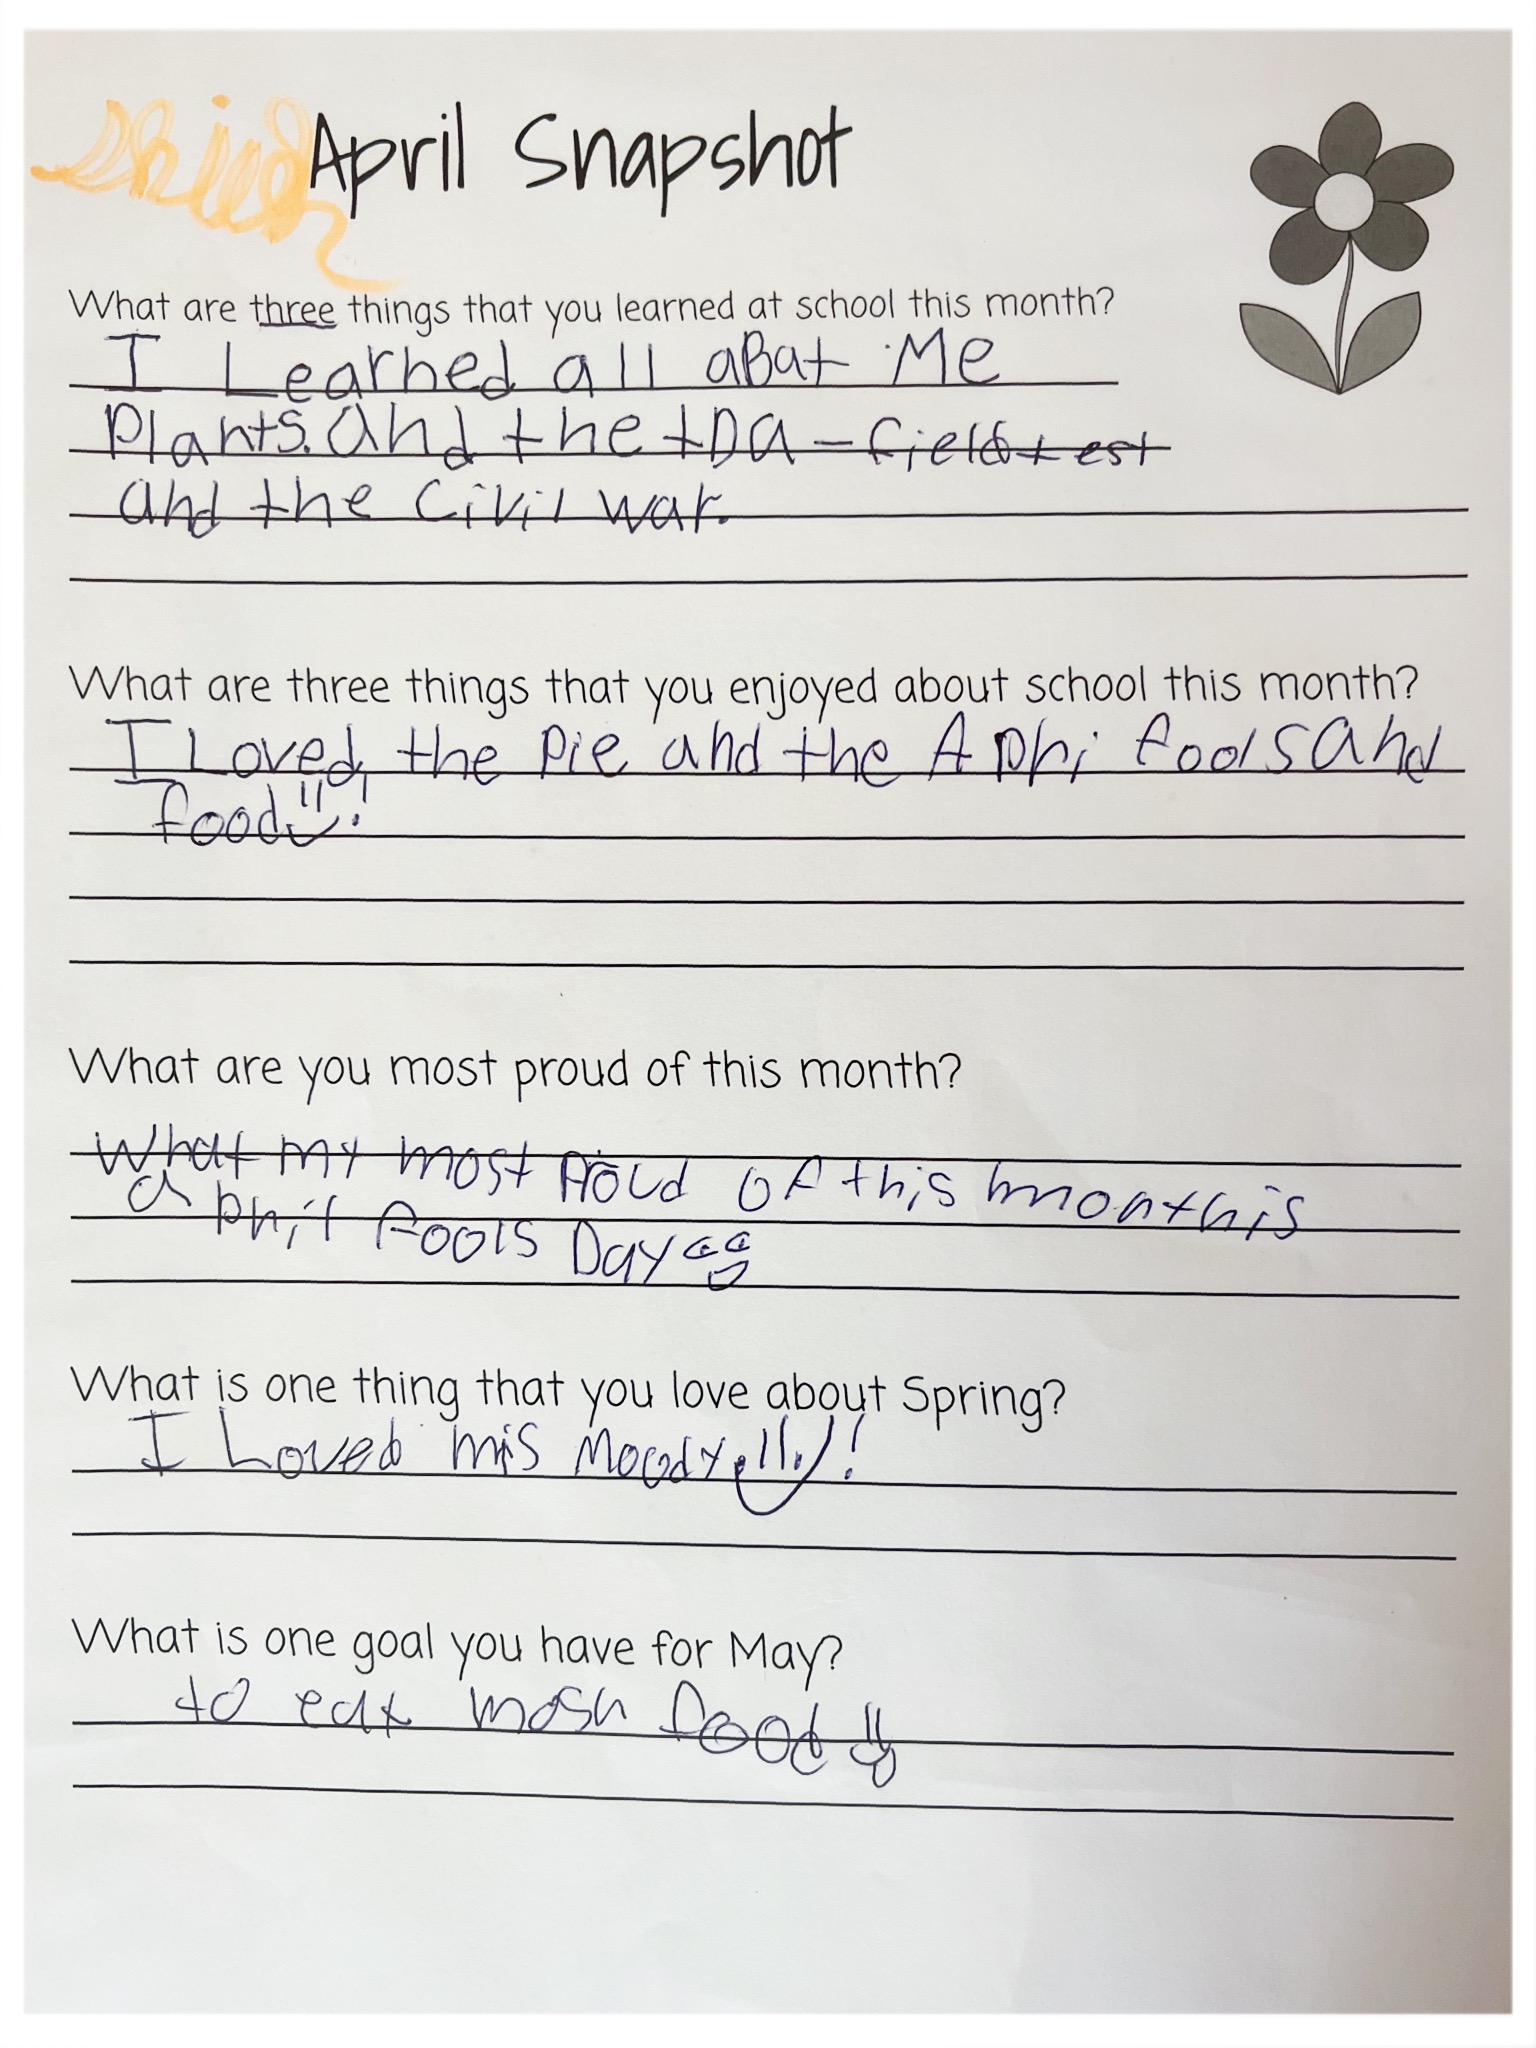 April Snapshot
What are three things that you learned at school this month?
I Learned all aBat Me
Plants. and the tDA - field test
and the Civil war.
What are three things that you enjoyed about school this month?
I Loved, the pie and the A phi fools and
food!
What are you most proud of this month?
What my most proud of this month is
a phil fools Day
What is one thing that you love about Spring?
I Loved mis Moody!
What is one goal you have for May?
to eat mosh food